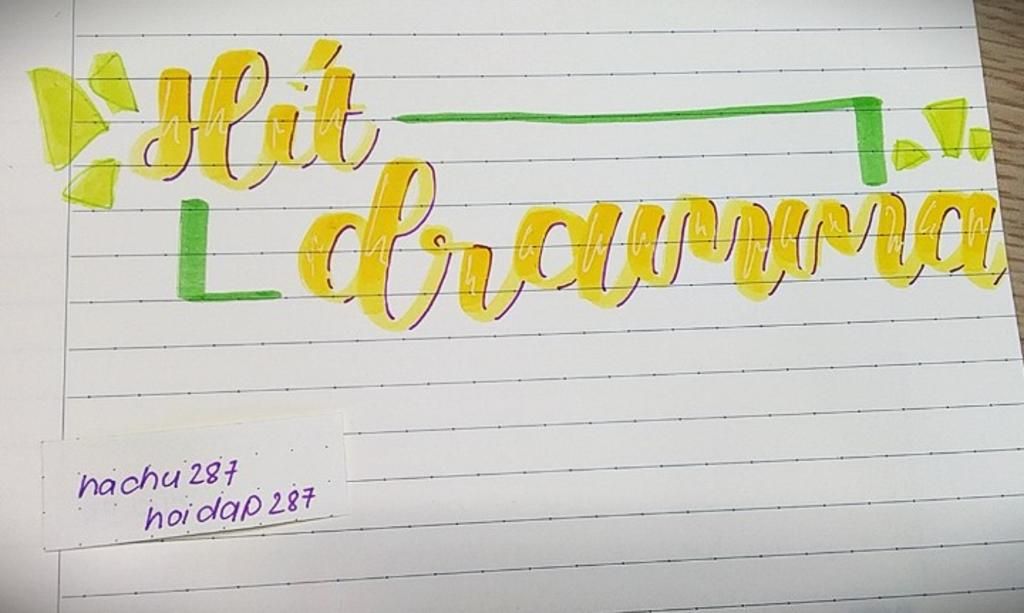 Hít
drama
hachu287
hoidap287